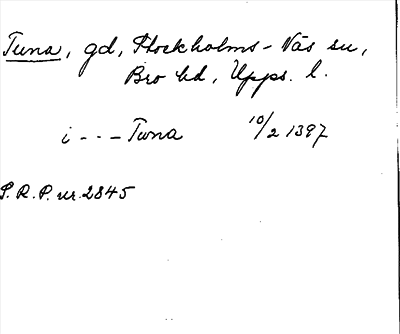 Tuna, gd, Stockholms-Näs sn,
Bro hd, Upps. l.
i - - - Tuna 10/2 1397
S.R.P. nr. 2845